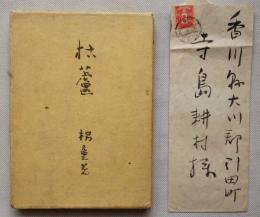 枯蘆
香川縣大川郡引田町
寺島耕村様